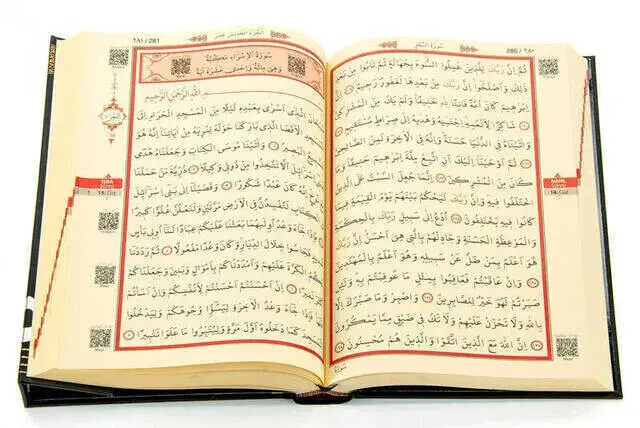 280 / ٢٨٠
سُورَةُ النَّحْلِ
ثُمَّ إِنَّ رَبَّكَ لِلَّذِينَ عَمِلُوا السُّوءَ بِجَهَالَةٍ ثُمَّ تَابُوا مِنْ بَعْدِ
ذٰلِكَ وَاَصْلَحُوا اِنَّ رَبَّكَ مِنْ بَعْدِهَا لَغَفُورٌ رَحِيمٌ اِنَّ
اِبْرٰهِيمَ كَانَ اُمَّةً قَانِتًا لِلّٰهِ حَنِيفًا وَلَمْ يَكُ مِنَ الْمُشْرِكِينَ
شَاكِرًا لِاَنْعُمِهِ اِجْتَبٰيهُ وَهَدٰيهُ اِلٰى صِرَاطٍ مُسْتَقِيمٍ
وَاٰتَيْنَاهُ فِي الدُّنْيَا حَسَنَةً وَاِنَّهُ فِي الْاٰخِرَةِ لَمِنَ الصَّالِحِينَ
ثُمَّ اَوْحَيْنَا اِلَيْكَ اَنِ اتَّبِعْ مِلَّةَ اِبْرٰهِيمَ حَنِيفًا وَمَا
كَانَ مِنَ الْمُشْرِكِينَ اِنَّمَا جُعِلَ السَّبْتُ عَلَى الَّذِينَ
اخْتَلَفُوا فِيهِ وَاِنَّ رَبَّكَ لَيَحْكُمُ بَيْنَهُمْ يَوْمَ الْقِيٰمَةِ فِيمَا
كَانُوا فِيهِ يَخْتَلِفُونَ اُدْعُ اِلٰى سَبِيلِ رَبِّكَ بِالْحِكْمَةِ
وَالْمَوْعِظَةِ الْحَسَنَةِ وَجَادِلْهُمْ بِالَّتِي هِيَ اَحْسَنُ اِنَّ رَبَّكَ
هُوَ اَعْلَمُ بِمَنْ ضَلَّ عَنْ سَبِيلِهِ وَهُوَ اَعْلَمُ بِالْمُهْتَدِينَ
وَاِنْ عَاقَبْتُمْ فَعَاقِبُوا بِمِثْلِ مَا عُوقِبْتُمْ بِهِ وَلَئِنْ
صَبَرْتُمْ لَهُوَ خَيْرٌ لِلصَّابِرِينَ وَاصْبِرْ وَمَا صَبْرُكَ اِلَّا
بِاللّٰهِ وَلَا تَحْزَنْ عَلَيْهِمْ وَلَا تَكُ فِي ضَيْقٍ مِمَّا يَمْكُرُونَ
اِنَّ اللّٰهَ مَعَ الَّذِينَ اتَّقَوْا وَالَّذِينَ هُمْ مُحْسِنُونَ
NAHL
Sûresi
14. Cüz
٢٨١ / 281
اَلْجُزْءُ الْخَامِسُ عَشَرَ
سُورَةُ الْاِسْرَاءِ مَكِّيَّةٌ
وَهِيَ مِائَةٌ وَاِحْدٰى عَشْرَةَ اٰيَةً
بِسْمِ اللّٰهِ الرَّحْمٰنِ الرَّحِيمِ
سُبْحَانَ الَّذِي اَسْرٰى بِعَبْدِهِ لَيْلًا مِنَ الْمَسْجِدِ الْحَرَامِ اِلَى
الْمَسْجِدِ الْاَقْصَا الَّذِي بَارَكْنَا حَوْلَهُ لِنُرِيَهُ مِنْ اٰيَاتِنَا اِنَّهُ هُوَ
السَّمِيعُ الْبَصِيرُ وَاٰتَيْنَا مُوسَى الْكِتَابَ وَجَعَلْنَاهُ هُدًى
لِبَنِي اِسْرَائِيلَ اَلَّا تَتَّخِذُوا مِنْ دُونِي وَكِيلًا ذُرِّيَّةَ مَنْ حَمَلْنَا
مَعَ نُوحٍ اِنَّهُ كَانَ عَبْدًا شَكُورًا وَقَضَيْنَا اِلٰى بَنِي اِسْرَائِيلَ
فِي الْكِتَابِ لَتُفْسِدُنَّ فِي الْاَرْضِ مَرَّتَيْنِ وَلَتَعْلُنَّ عُلُوًّا كَبِيرًا
فَاِذَا جَاءَ وَعْدُ اُولٰيهُمَا بَعَثْنَا عَلَيْكُمْ عِبَادًا لَنَا اُولِي بَأْسٍ
شَدِيدٍ فَجَاسُوا خِلَالَ الدِّيَارِ وَكَانَ وَعْدًا مَفْعُولًا ثُمَّ رَدَدْنَا
لَكُمُ الْكَرَّةَ عَلَيْهِمْ وَاَمْدَدْنَاكُمْ بِاَمْوَالٍ وَبَنِينَ وَجَعَلْنَاكُمْ
اَكْثَرَ نَفِيرًا اِنْ اَحْسَنْتُمْ اَحْسَنْتُمْ لِاَنْفُسِكُمْ وَاِنْ اَسَأْتُمْ
فَلَهَا فَاِذَا جَاءَ وَعْدُ الْاٰخِرَةِ لِيَسُوؤُا وُجُوهَكُمْ وَلِيَدْخُلُوا
الْمَسْجِدَ كَمَا دَخَلُوهُ اَوَّلَ مَرَّةٍ وَلِيُتَبِّرُوا مَا عَلَوْا تَتْبِيرًا
ISRA
Sûresi
15. Cüz